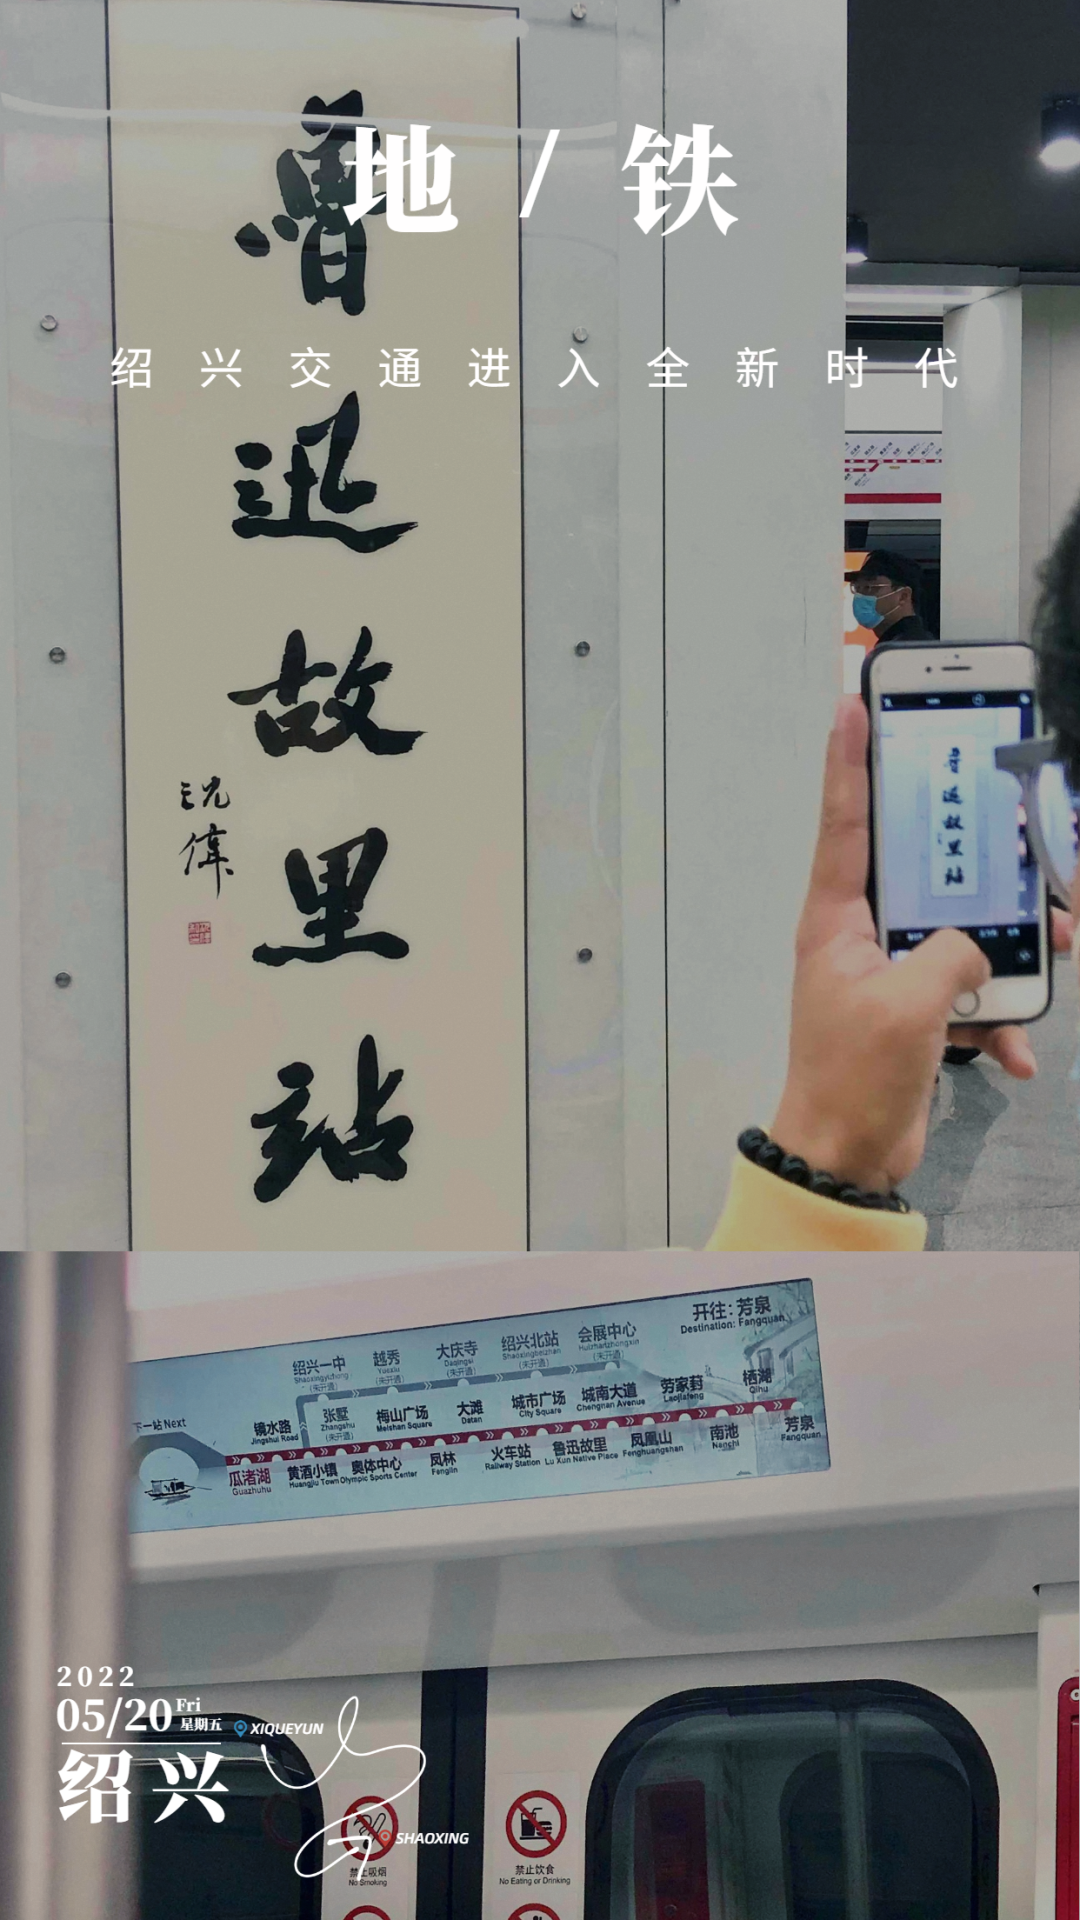 地/铁
绍兴交通进入全新时代
魯迅故里站
沈偉
开往：芳泉
Destination: Fangquan
绍兴一中
Shaoxingyizhong
(未开通)
越秀
Yuexiu
(未开通)
大庆寺
Daqingsi
(未开通)
绍兴北站
Shaoxingbeizhan
(未开通)
会展中心
Huizhanzhongxin
(未开通)
下一站 Next
镜水路
Jingshui Road
张墅
Zhangshu
(未开通)
梅山广场
Meishan Square
大滩
Datan
城市广场
City Square
城南大道
Chengnan Avenue
劳家葑
Laojiafeng
栖湖
Qihu
瓜渚湖
Guazhuhu
黄酒小镇
Huangjiu Town
奥体中心
Olympic Sports Center
凤林
Fenglin
火车站
Railway Station
鲁迅故里
Lu Xun Native Place
凤凰山
Fenghuangshan
南池
Nanchi
芳泉
Fangquan
2022
05/20 Fri
星期五
绍兴
XIQUEYUN
SHAOXING
禁止吸烟
No Smoking
禁止饮食
No Eating or Drinking